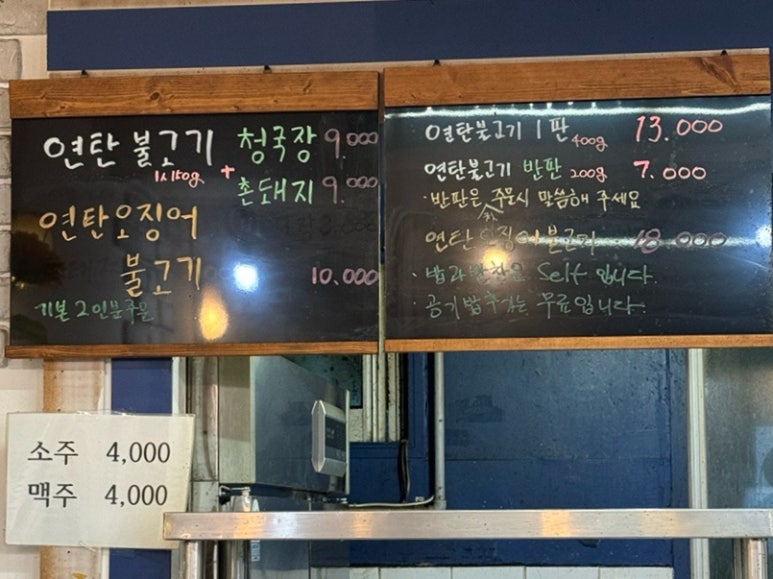 연탄 불고기 + 청국장 9.000
1人150g 촌돼지 9.000
연탄오징어
불고기 10.000
기본 2인분주문
연탄불고기 1판 400g 13.000
연탄불고기 반판 200g 7.000
· 반판은 주문시 말씀해 주세요
연탄 오징어 불고기 18.000
· 밥과 반찬은 Self 입니다.
· 공기밥추가는 무료입니다.
소주 4,000
맥주 4,000